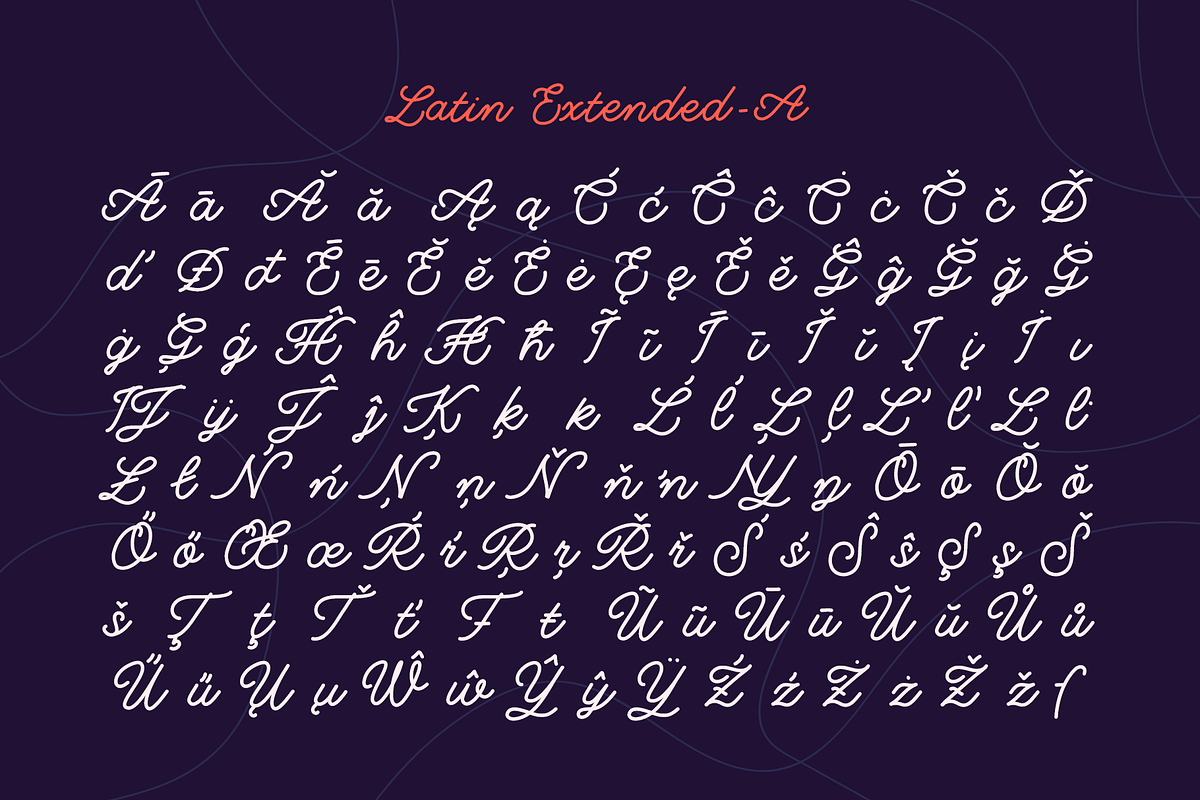 Latin Extended-A
Ā ā Ă ă Ą ą Ć ć Ĉ ĉ Ċ ċ Č č Ď
ď Đ đ Ē ē Ĕ ĕ Ė ė Ę ę Ě ě Ĝ ĝ Ğ ğ Ġ
ġ Ģ ģ Ĥ ĥ Ħ ħ Ĩ ĩ Ī ī Ĭ ĭ Į į İ ı
IJ ij Ĵ ĵ Ķ ķ ĸ Ĺ ĺ Ļ ļ Ľ ľ Ŀ ŀ
Ł ł Ń ń Ņ ņ Ň ň ŉ Ŋ ŋ Ō ō Ŏ ŏ
Ő ő Œ œ Ŕ ŕ Ŗ ŗ Ř ř Ś ś Ŝ ŝ Ş ş Š
š Ţ ţ Ť ť Ŧ ŧ Ũ ũ Ū ū Ŭ ŭ Ů ů
Ű ű Ų ų Ŵ ŵ Ŷ ŷ Ÿ Ź ź Ż ż Ž ž ſ